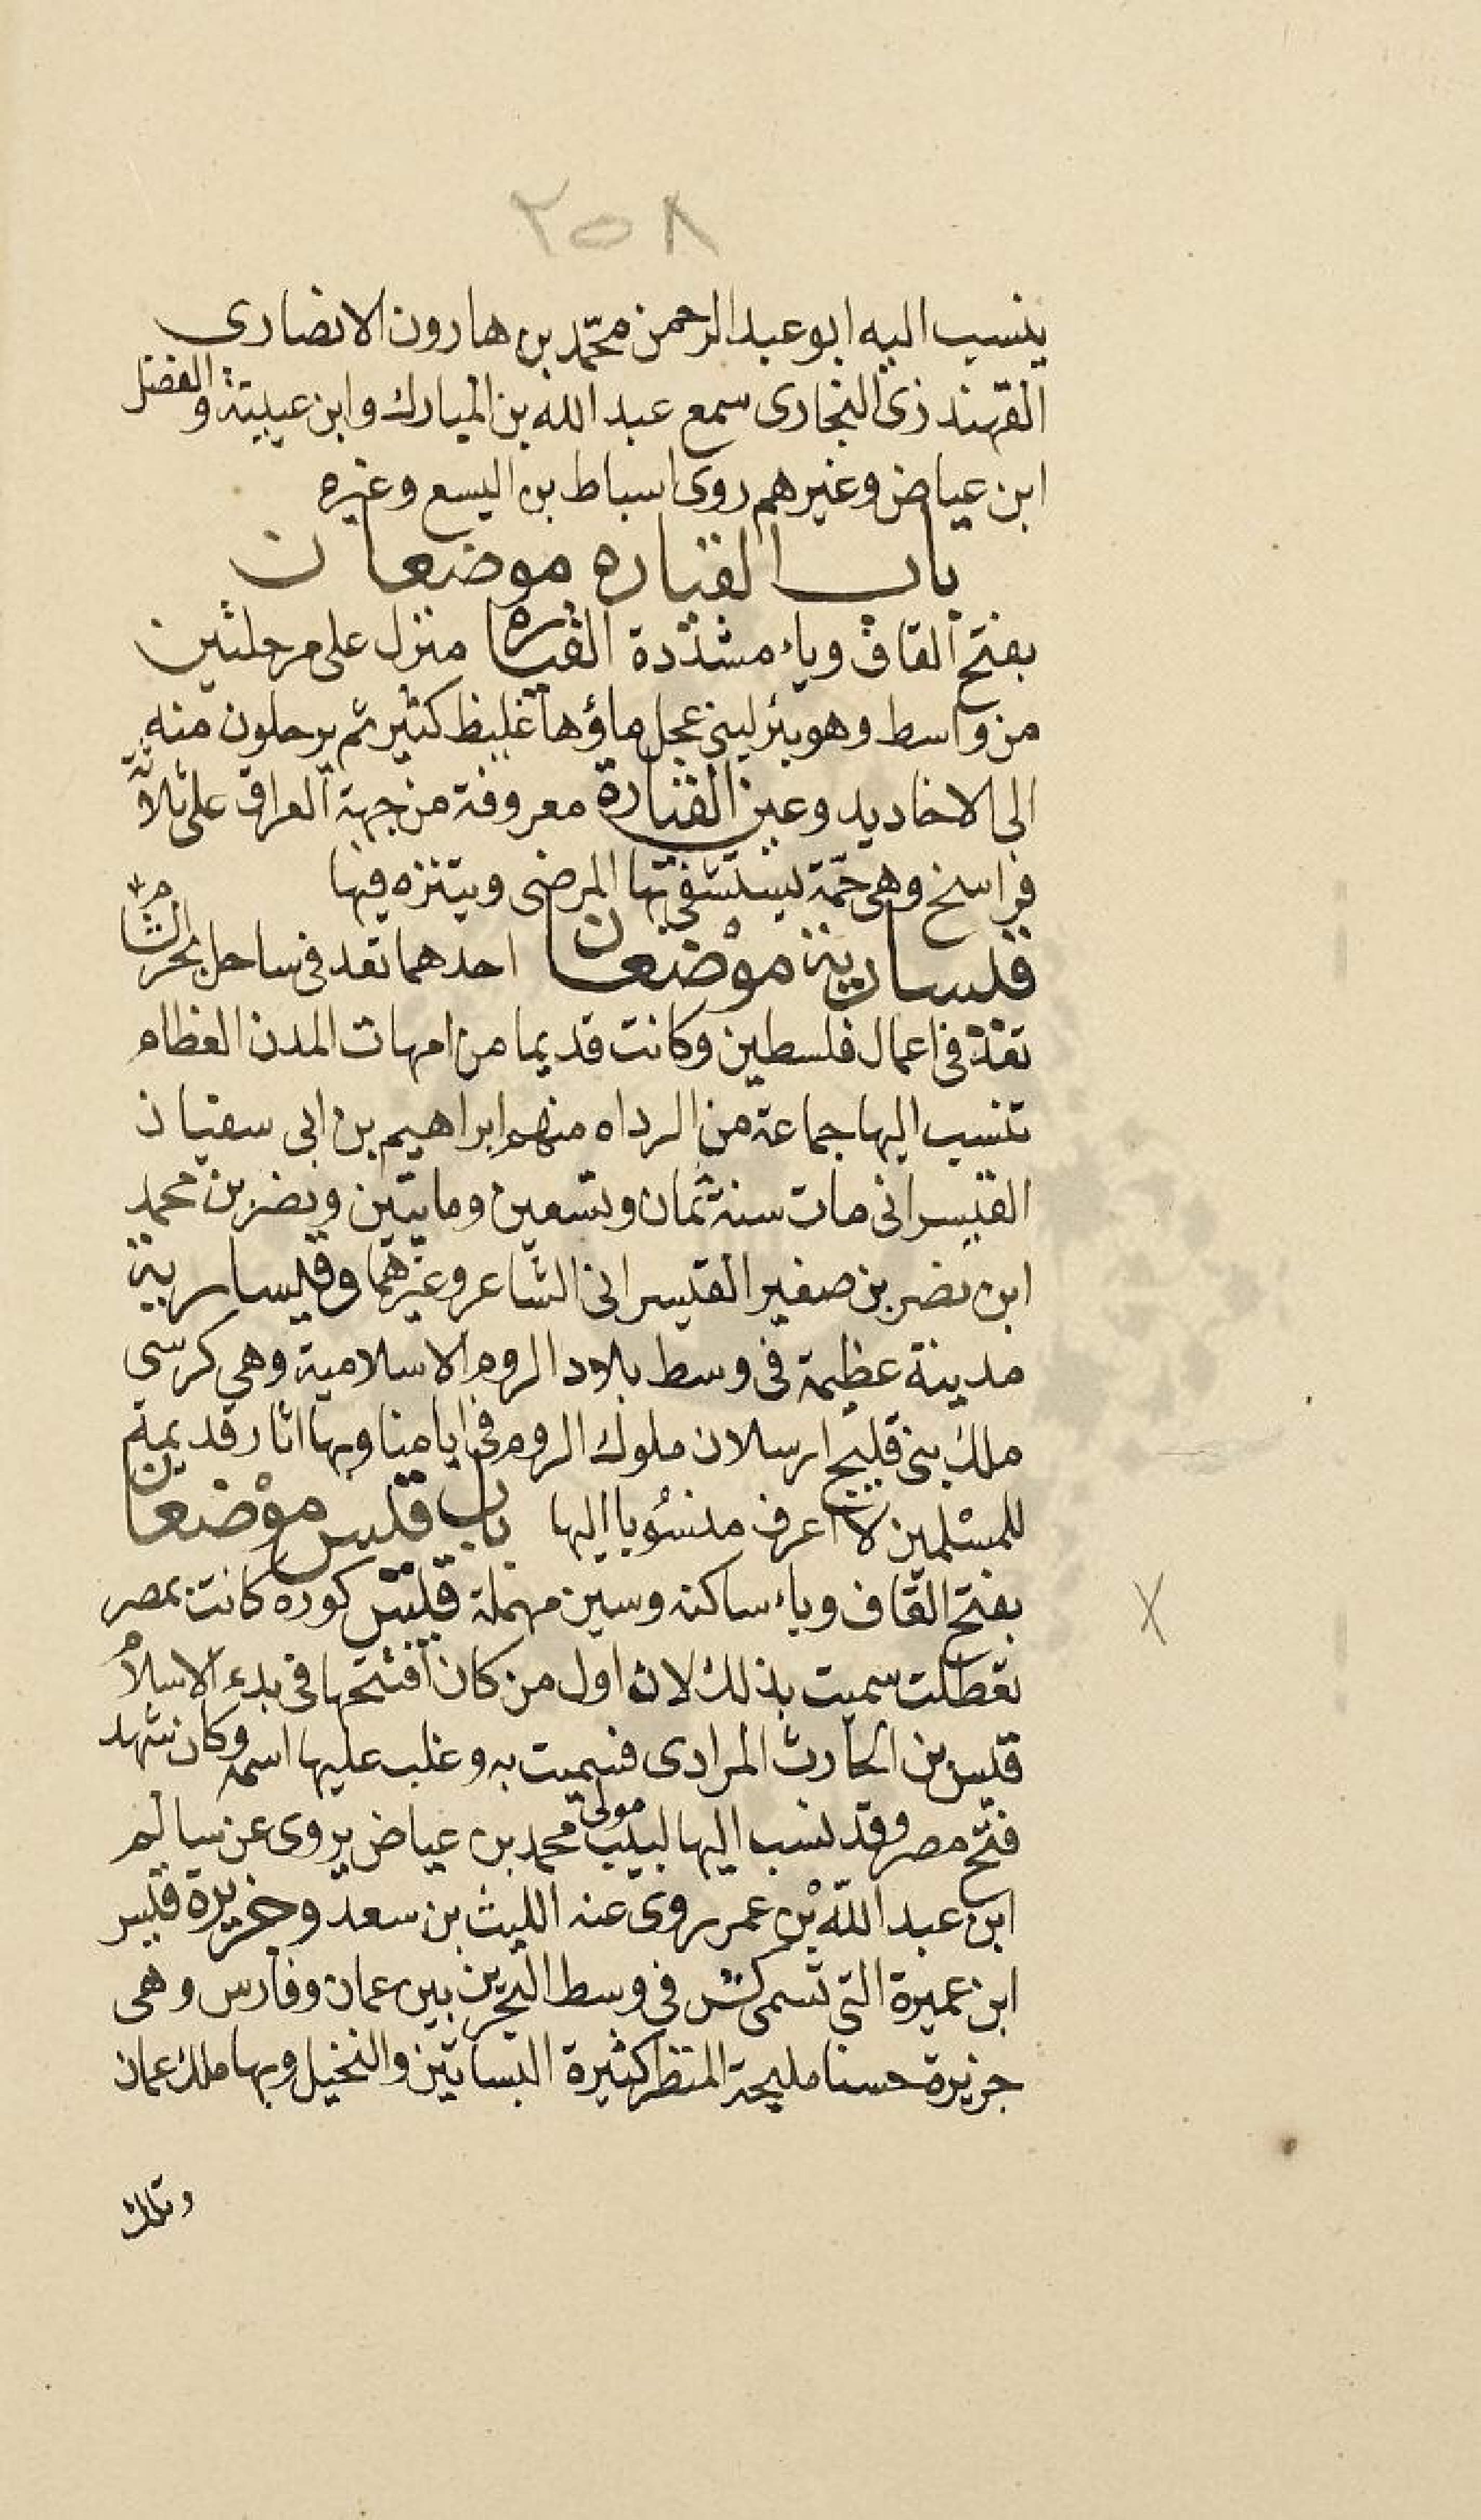 ٢٥٨
ينسب اليه ابو عبد الرحمن محمّد بن هارون الانصارى
القهندزى البخارى سمع عبد الله بن المبارك وابن عيينة والفضل
ابن عياض وغيرهم روى اسباط بن اليسع وغيره
باب القياره موضعان
بفتح القاف وياء مشدّدة القياره منزل على مرحلتين
من واسط وهو بئر لبنى عجل ماؤها غليظ كثير ثم يرحلون منه
الى الاخاديد وعين القيارة معروفة من جهة العراق على ثلاثة
فراسخ وهى حمّة يستشفى بها المرضى ويتنزه فيها
قيسارية موضعان احدهما تعد فى ساحل بحر الشام
تعدّ فى اعمال فلسطين وكانت قديما من امهات المدن العظام
تنسب اليها جماعة من الرواه منهم ابراهيم بن ابى سفيان
القيسرانى مات سنة ثمان وتسعين ومايتين ونصر بن محمد
ابن نصر بن صغير القيسرانى الشاعر وغيرهما وقيسارية
مدينة عظيمة فى وسط بلاد الروم الاسلامية وهي كرسي
ملك بنى قليج ارسلان ملوك الروم فى ايامنا وبها اثار قديمة
للمسلمين لا اعرف منسُوبا اليها باب قيس موضعان
بفتح القاف وياء ساكنه وسين مهملة قيس كوره كانت بمصر
تعطلت سميت بذلك لان اول من كان افتتحها فى بدء الاسلام
قيس بن الحارث المرادى فسميت به وغلب عليها اسمه وكان شهد
فتح مصر وقد نسب اليها لبيب مولى محمد بن عياض يروى عن سالم
ابن عبد اللّه بن عمر روى عنه الليث بن سعد وجزيرة قيس
ابن عميرة التي تسمى كش فى وسط البحرين بين عمان وفارس وهى
جزيرة حسنا مليحة المنظر كثيرة البساتين والنخيل وبها ملك عمان
وتلك